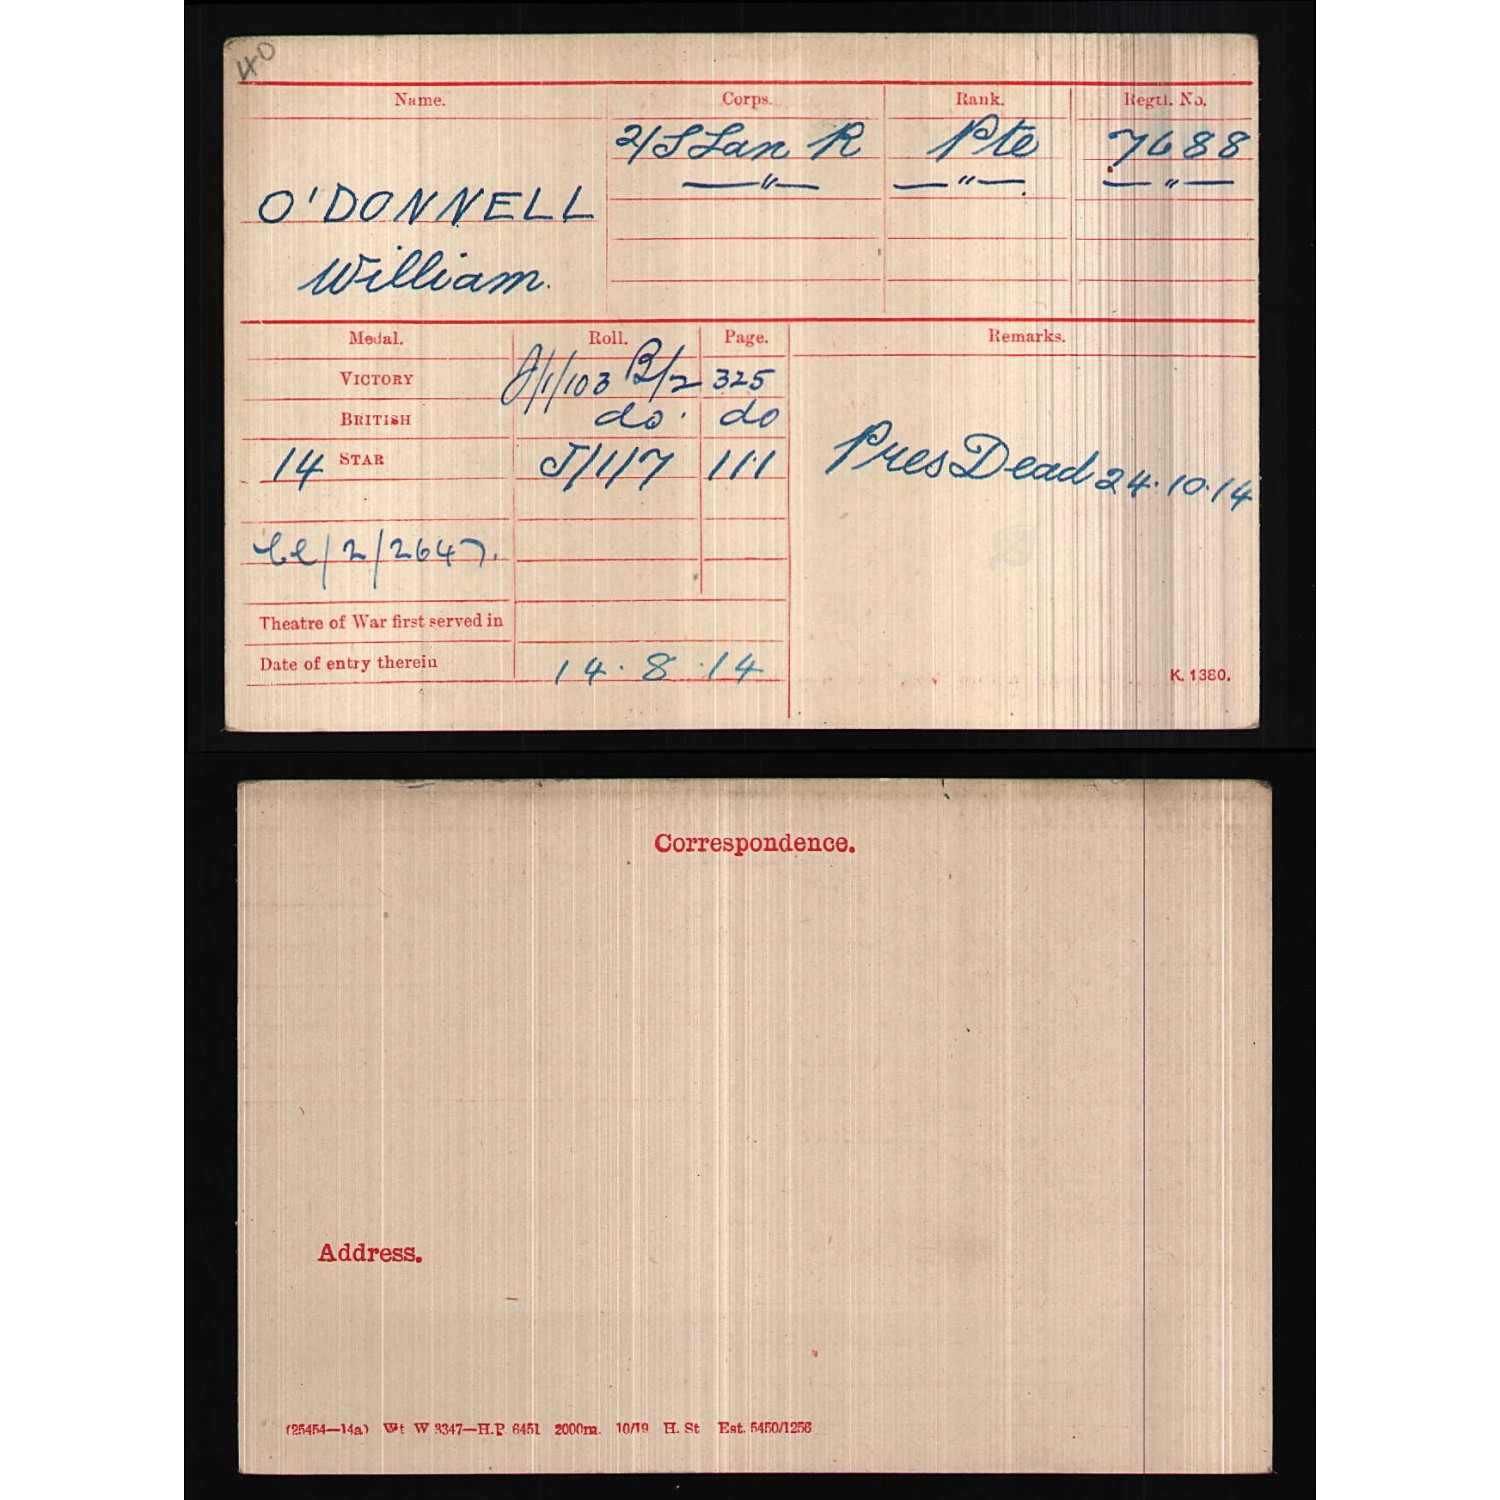 40
Name. Corps. Rank. Regtl. No.
2/S Lan R Pte 7688
—"— —"— —"—
O'DONNELL
William.
Medal. Roll. Page. Remarks.
VICTORY J/1/103 B/2 325
BRITISH do. do
14 STAR J/1/7 111
Pres Dead 24.10.14
/2/2647.
Theatre of War first served in
Date of entry therein 14.8.14
K. 1380.
Correspondence.
Address.
(25454—14a) Wt W 3347—H.P. 6451 2000m. 10/19 H. St Est. 5450/1256